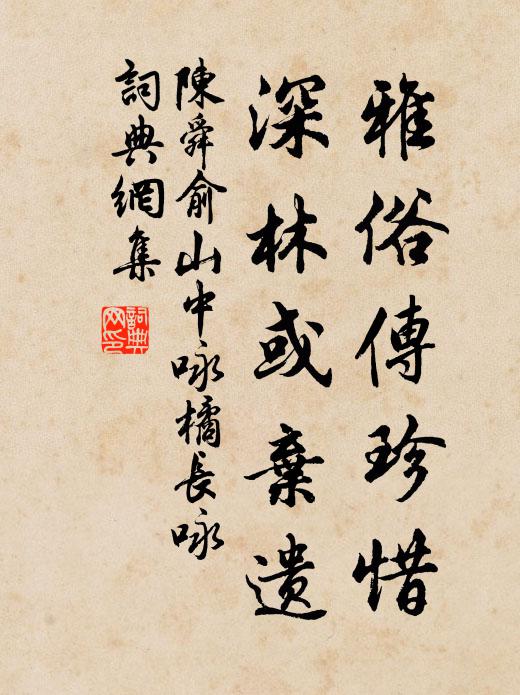 雅俗傳珍惜
深林或棄遺
陳舜俞山中咏橘長咏
詞典網集
詞典网印